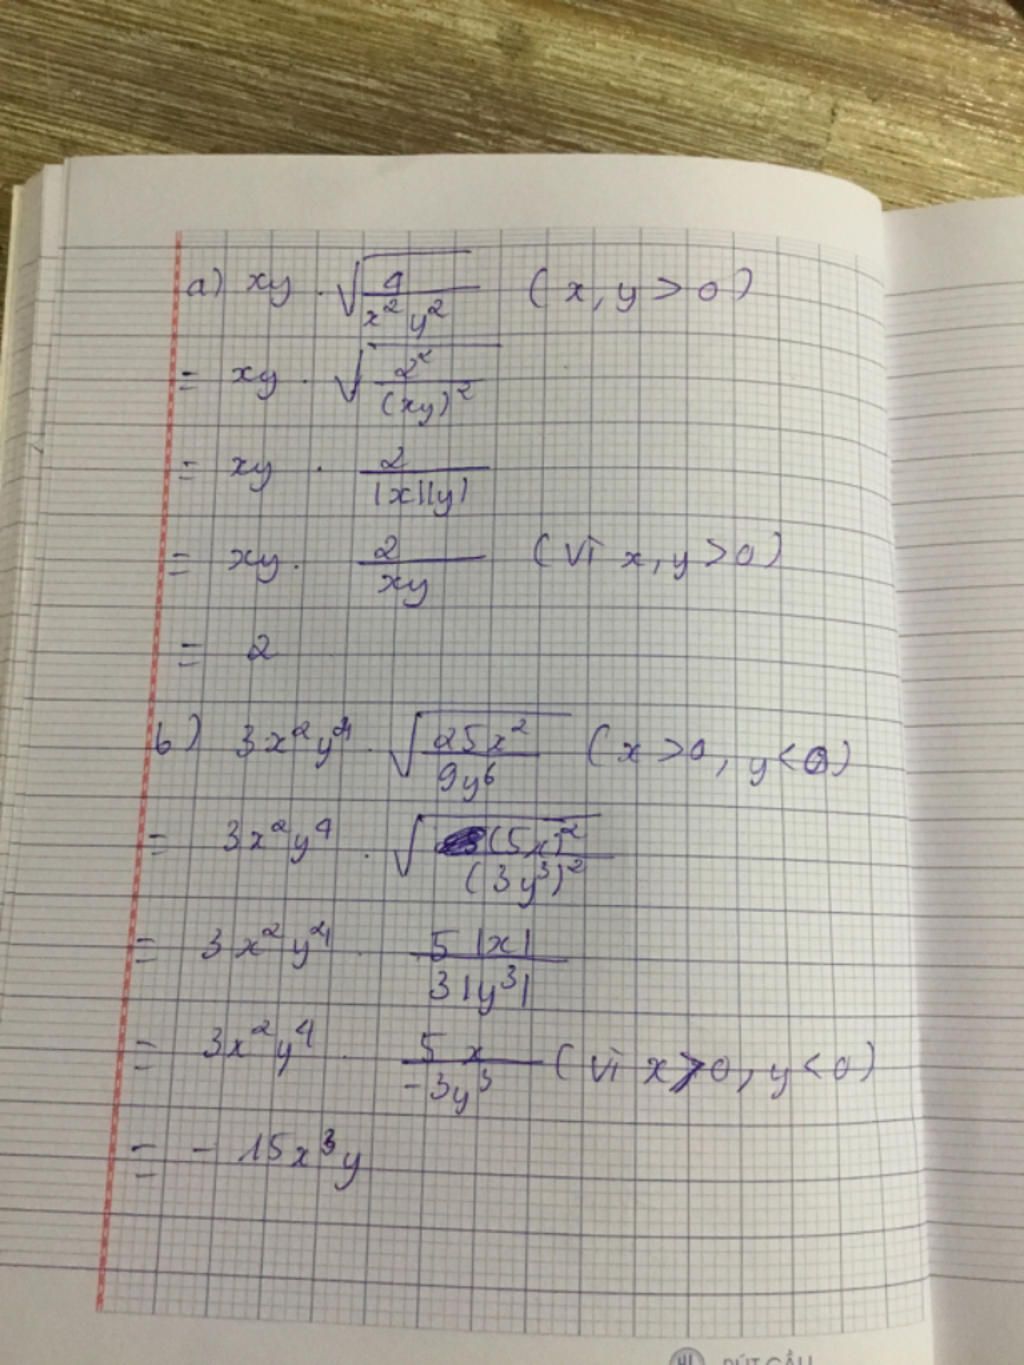 a) xy . √(4/(x² y²)) ( x, y > 0 )
= xy . √(2²/(xy)²)
= xy . 2/(|x||y|)
= xy . 2/(xy) ( vì x, y > 0 )
= 2
b) 3x²y⁴ . √(25x²/(9y⁶)) ( x > 0, y < 0 )
= 3x²y⁴ . √((5x)²/(3y³)²)
= 3x²y⁴ . 5|x|/(3|y³|)
= 3x²y⁴ . 5x/(-3y³) ( vì x > 0, y < 0 )
= - 15x³y